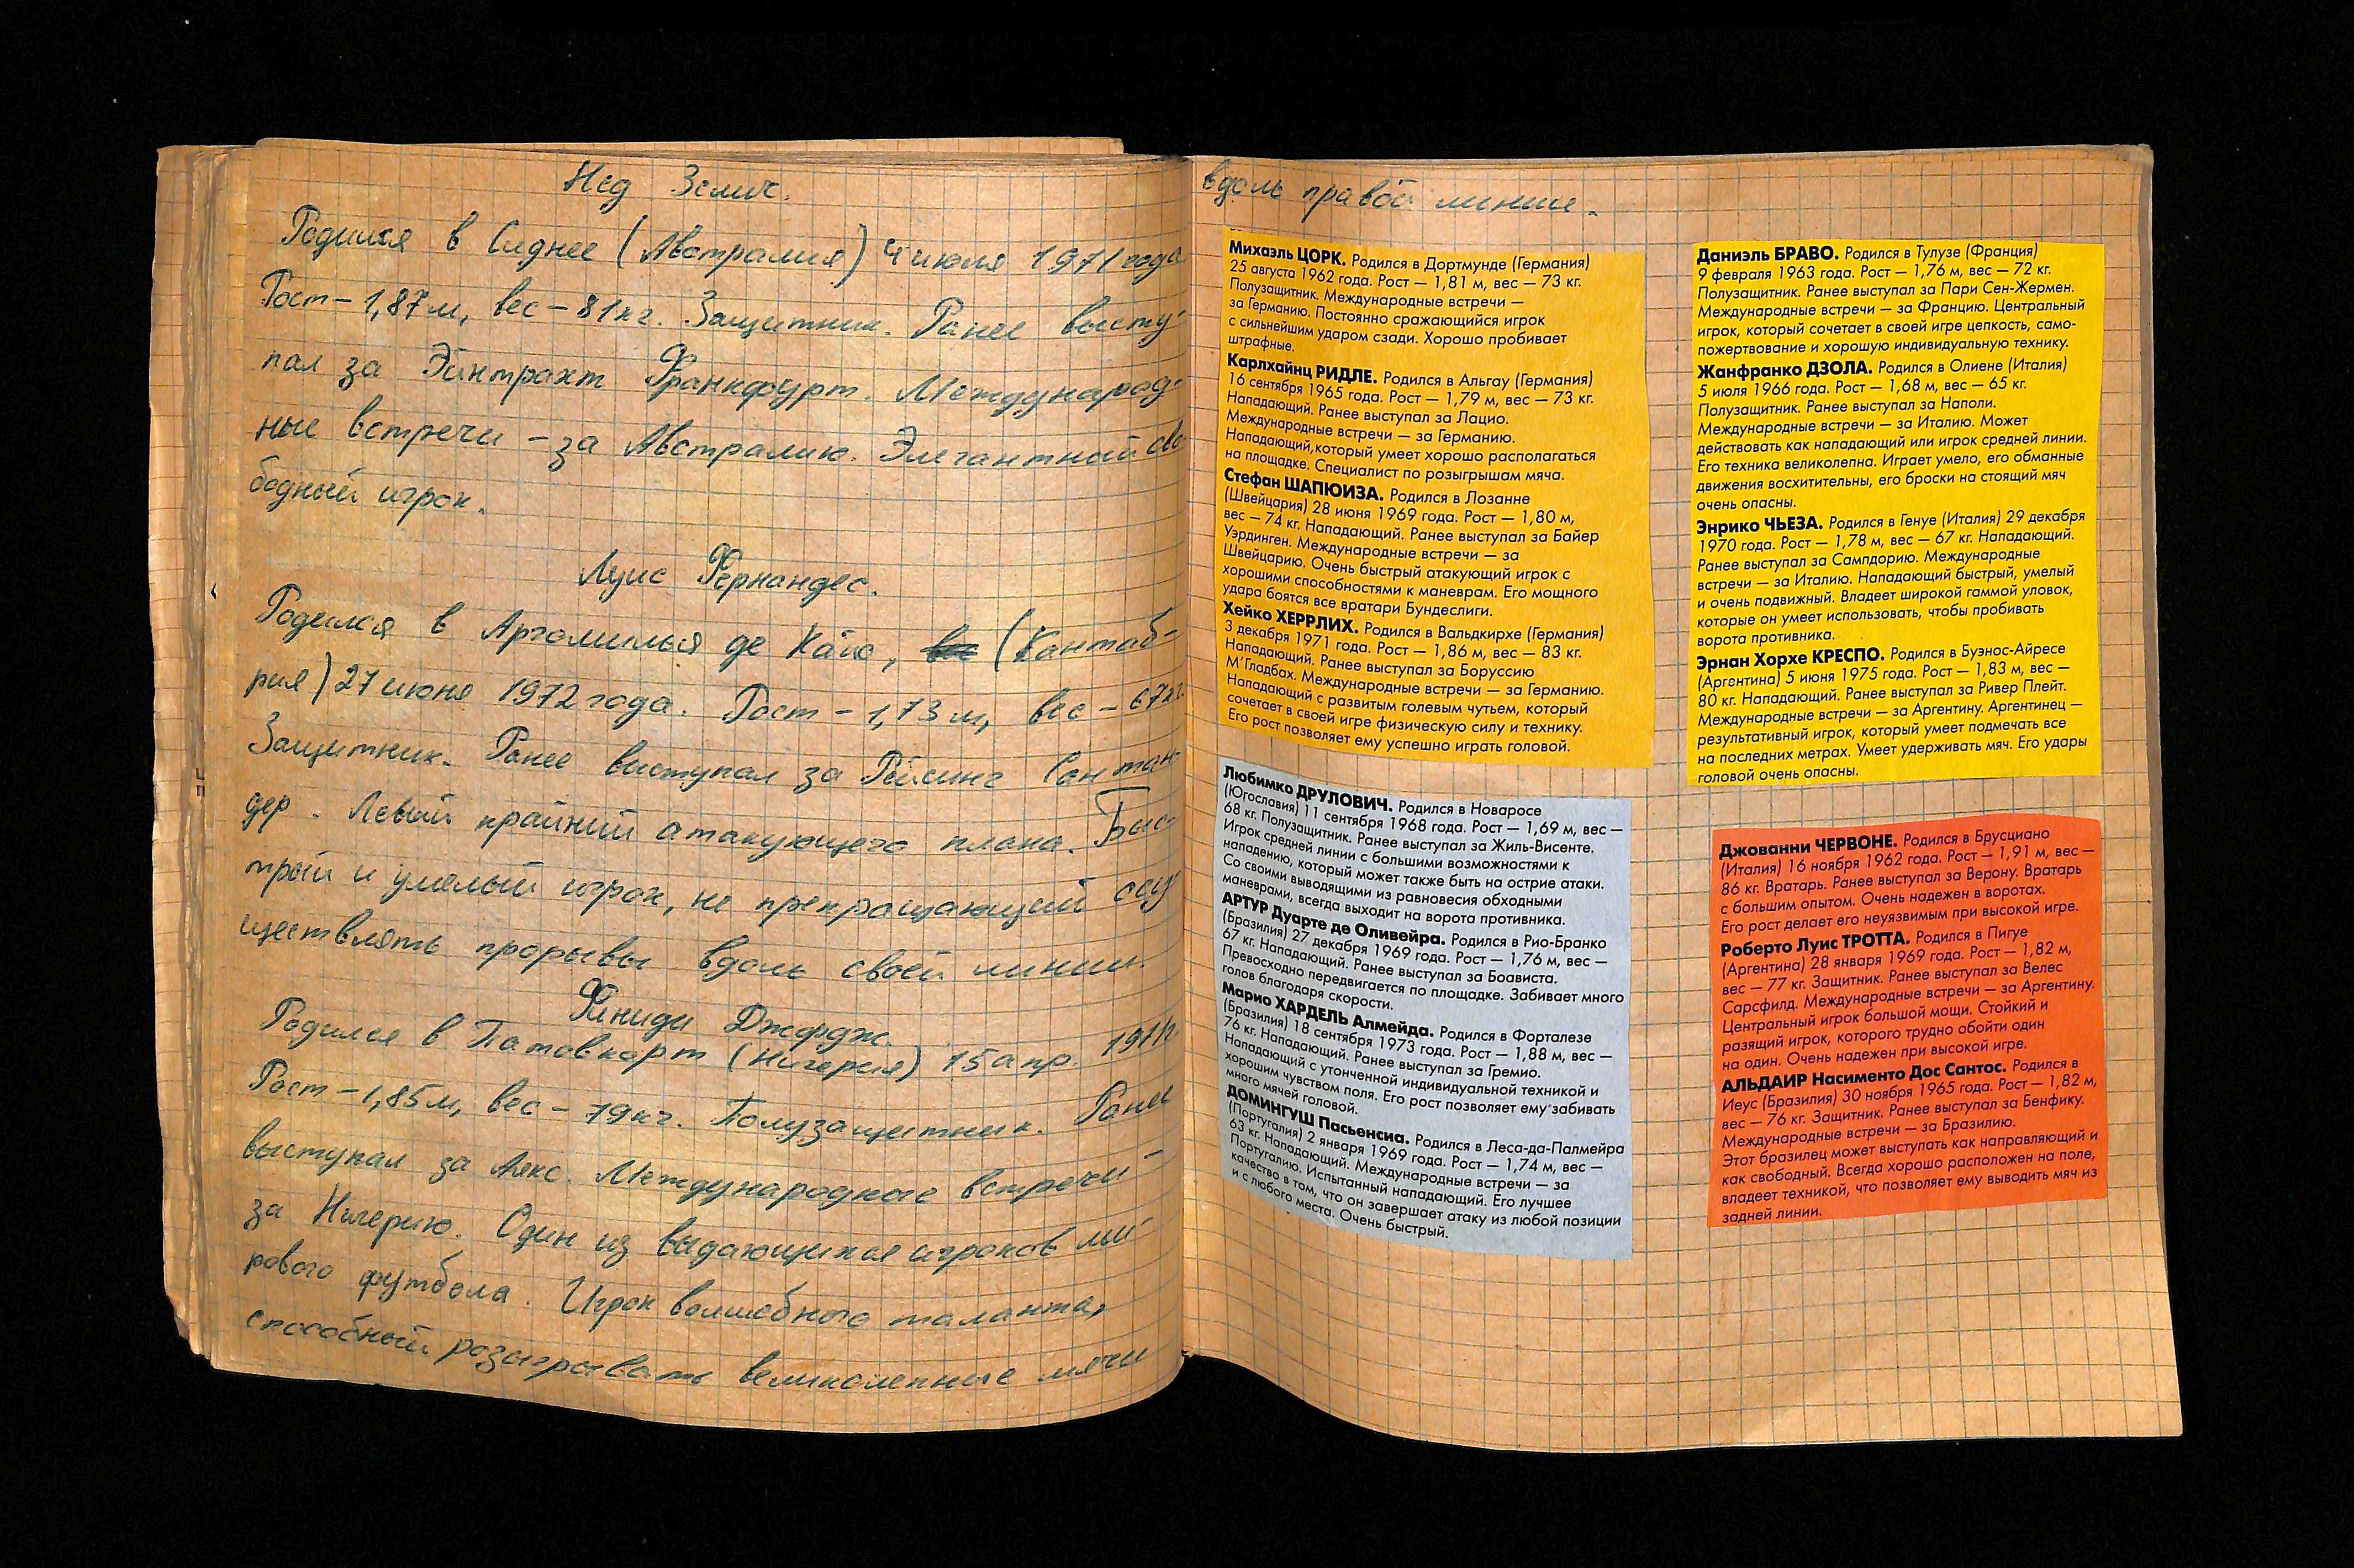 Нед Зелич.
Родился в Сиднее (Австралия) 4 июля 1971 года
Рост – 1,87 м, вес – 81 кг. Защитник. Ранее высту-
пал за Эйнтрахт Франкфурт. Международ-
ные встречи – за Австралию. Элегантный сво
бодный игрок.
Луис Фернандес.
Родился в Аргомилья де Кайо, (Кантаб-
рия) 27 июня 1972 года. Рост – 1,73 м, вес – 67 кг.
Защитник. Ранее выступал за Рейсинг Сантан-
дер. Левый крайний атакующего плана. Быс-
трый и умелый игрок, не прекращающий осу
ществлять прорывы вдоль своей линии.
Финиди Джордж.
Родился в (Нигерия) 15 апр. 1971г.
Рост – 1,85 м, вес – 79 кг. Полузащитник. Ранее
выступал за Аякс. Международные встречи –
за Нигерию. Один из выдающихся игроков ми
рового футбола. Игрок волшебного таланта,
способный розыгрывать великолепные мячи
вдоль правой линии.
Михаэль ЦОРК. Родился в Дортмунде (Германия)
25 августа 1962 года. Рост — 1,81 м, вес — 73 кг.
Полузащитник. Международные встречи —
за Германию. Постоянно сражающийся игрок
с сильнейшим ударом сзади. Хорошо пробивает
штрафные.
Карлхайнц РИДЛЕ. Родился в Альгау (Германия)
16 сентября 1965 года. Рост — 1,79 м, вес — 73 кг.
Нападающий. Ранее выступал за Лацио.
Международные встречи — за Германию.
Нападающий,который умеет хорошо располагаться
на площадке. Специалист по розыгрышам мяча.
Стефан ШАПЮИЗА. Родился в Лозанне
(Швейцария) 28 июня 1969 года. Рост — 1,80 м,
вес — 74 кг. Нападающий. Ранее выступал за Байер
Уэрдинген. Международные встречи — за
Швейцарию. Очень быстрый атакующий игрок с
хорошими способностями к маневрам. Его мощного
удара боятся все вратари Бундеслиги.
Хейко ХЕРРЛИХ. Родился в Вальдкирхе (Германия)
3 декабря 1971 года. Рост — 1,86 м, вес — 83 кг.
Нападающий. Ранее выступал за Боруссию
М'Гладбах. Международные встречи — за Германию.
Нападающий с развитым голевым чутьем, который
сочетает в своей игре физическую силу и технику.
Его рост позволяет ему успешно играть головой.
Любимко ДРУЛОВИЧ. Родился в Новаросе
(Югославия) 11 сентября 1968 года. Рост — 1,69 м, вес —
68 кг. Полузащитник. Ранее выступал за Жиль-Висенте.
Игрок средней линии с большими возможностями к
нападению, который может также быть на острие атаки.
Со своими выводящими из равновесия обходными
маневрами, всегда выходит на ворота противника.
АРТУР Дуарте де Оливейра. Родился в Рио-Бранко
(Бразилия) 27 декабря 1969 года. Рост — 1,76 м, вес —
67 кг. Нападающий. Ранее выступал за Боависта.
Превосходно передвигается по площадке. Забивает много
голов благодаря скорости.
Марио ХАРДЕЛЬ Алмейда. Родился в Форталезе
(Бразилия) 18 сентября 1973 года. Рост — 1,88 м, вес —
76 кг. Нападающий. Ранее выступал за Гремио.
Нападающий с утонченной индивидуальной техникой и
хорошим чувством поля. Его рост позволяет ему забивать
много мячей головой.
ДОМИНГУШ Пасьенсиа. Родился в Леса-да-Палмейра
(Португалия) 2 января 1969 года. Рост — 1,74 м, вес —
63 кг. Нападающий. Международные встречи — за
Португалию. Испытанный нападающий. Его лучшее
качество в том, что он завершает атаку из любой позиции
и с любого места. Очень быстрый.
Даниэль БРАВО. Родился в Тулузе (Франция)
9 февраля 1963 года. Рост — 1,76 м, вес — 72 кг.
Полузащитник. Ранее выступал за Пари Сен-Жермен.
Международные встречи — за Францию. Центральный
игрок, который сочетает в своей игре цепкость, само-
пожертвование и хорошую индивидуальную технику.
Жанфранко ДЗОЛА. Родился в Олиене (Италия)
5 июля 1966 года. Рост — 1,68 м, вес — 65 кг.
Полузащитник. Ранее выступал за Наполи.
Международные встречи — за Италию. Может
действовать как нападающий или игрок средней линии.
Его техника великолепна. Играет умело, его обманные
движения восхитительны, его броски на стоящий мяч
очень опасны.
Энрико ЧЬЕЗА. Родился в Генуе (Италия) 29 декабря
1970 года. Рост — 1,78 м, вес — 67 кг. Нападающий.
Ранее выступал за Сампдорию. Международные
встречи — за Италию. Нападающий быстрый, умелый
и очень подвижный. Владеет широкой гаммой уловок,
которые он умеет использовать, чтобы пробивать
ворота противника.
Эрнан Хорхе КРЕСПО. Родился в Буэнос-Айресе
(Аргентина) 5 июня 1975 года. Рост — 1,83 м, вес —
80 кг. Нападающий. Ранее выступал за Ривер Плейт.
Международные встречи — за Аргентину. Аргентинец —
результативный игрок, который умеет подмечать все
на последних метрах. Умеет удерживать мяч. Его удары
головой очень опасны.
Джованни ЧЕРВОНЕ. Родился в Брусциано
(Италия) 16 ноября 1962 года. Рост — 1,91 м, вес —
86 кг. Вратарь. Ранее выступал за Верону. Вратарь
с большим опытом. Очень надежен в воротах.
Его рост делает его неуязвимым при высокой игре.
Роберто Луис ТРОТТА. Родился в Пигуе
(Аргентина) 28 января 1969 года. Рост — 1,82 м,
вес — 77 кг. Защитник. Ранее выступал за Велес
Сарсфилд. Международные встречи — за Аргентину.
Центральный игрок большой мощи. Стойкий и
разящий игрок, которого трудно обойти один
на один. Очень надежен при высокой игре.
АЛЬДАИР Насименто Дос Сантос. Родился в
Иеус (Бразилия) 30 ноября 1965 года. Рост — 1,82 м,
вес — 76 кг. Защитник. Ранее выступал за Бенфику.
Международные встречи — за Бразилию.
Этот бразилец может выступать как направляющий и
как свободный. Всегда хорошо расположен на поле,
владеет техникой, что позволяет ему выводить мяч из
задней линии.